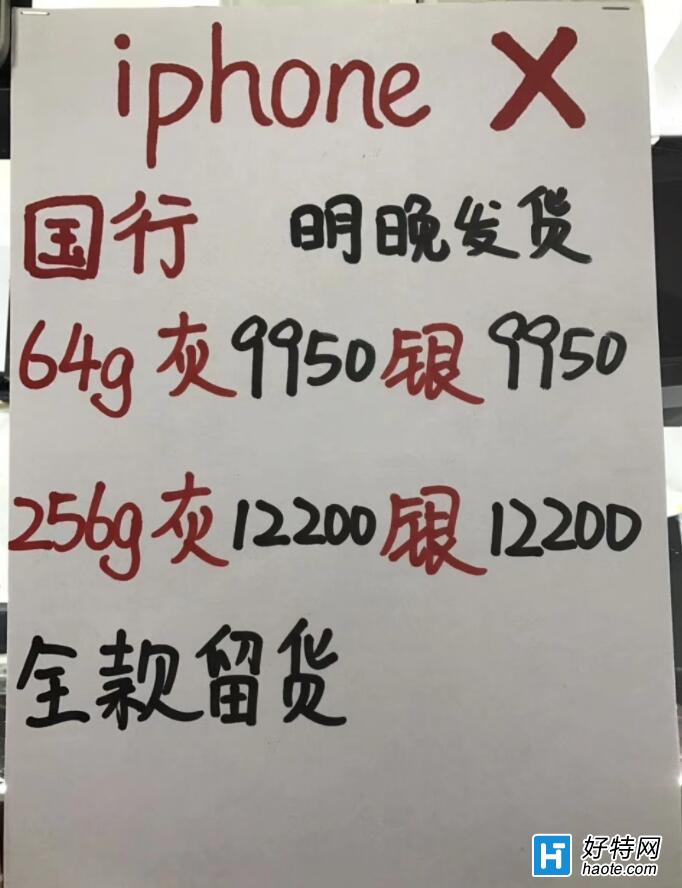 iphone X
国行 明晚发货
64g 灰 9950 银 9950
256g 灰 12200 银 12200
全款留货
H 好特网
haote.com